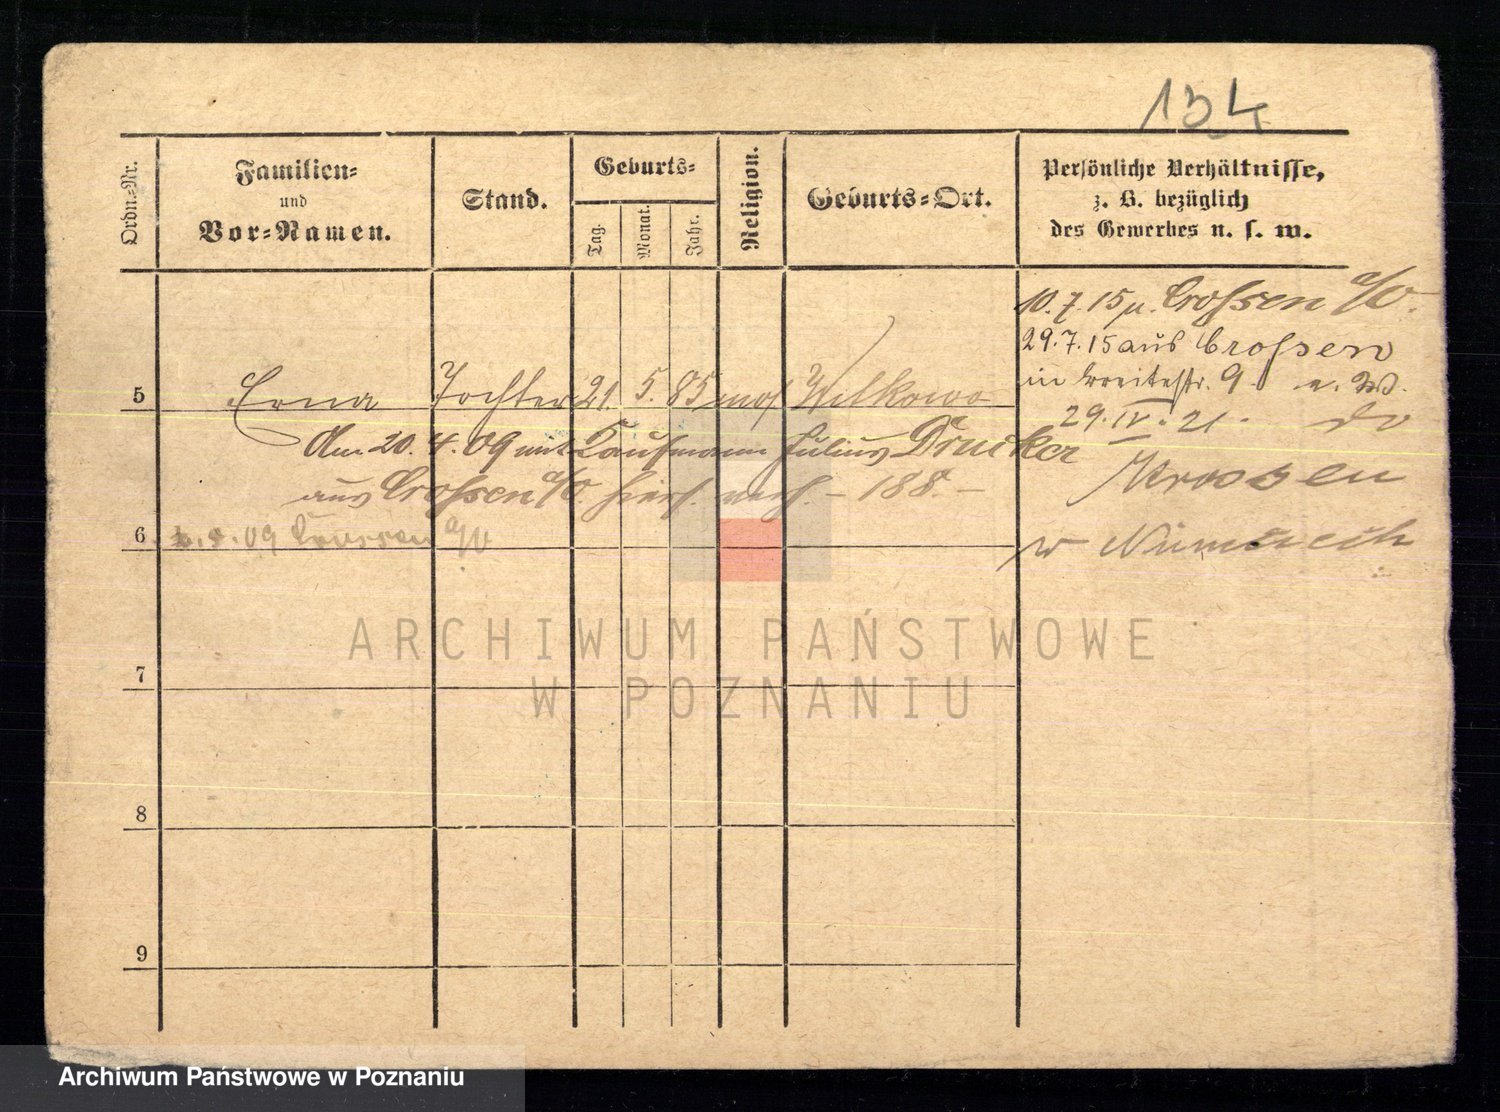 134
Ordn.-Nr.
Familien-
und
Vor-Namen.
Stand.
Geburts-
Tag.
Monat.
Jahr.
Religion.
Geburts-Ort.
Persönliche Verhältnisse,
z. B. bezüglich
des Gewerbes u. s. w.
10. 7. 15 n. Crossen a/O.
29. 7. 15 aus Crossen
in Breitestr. 9
29. IV. 21.
Krossen
w Niemczech
5 Erna Tochter 21. 5. 85 mos Wilkowo
Am 20. 4. 09 mit Kaufmann Julius Drucker
aus Crossen a/O. hiers. verh. - 188. -
6 09 Crossen a/O
7
8
9
ARCHIWUM PAŃSTWOWE
W POZNANIU
Archiwum Państwowe w Poznaniu